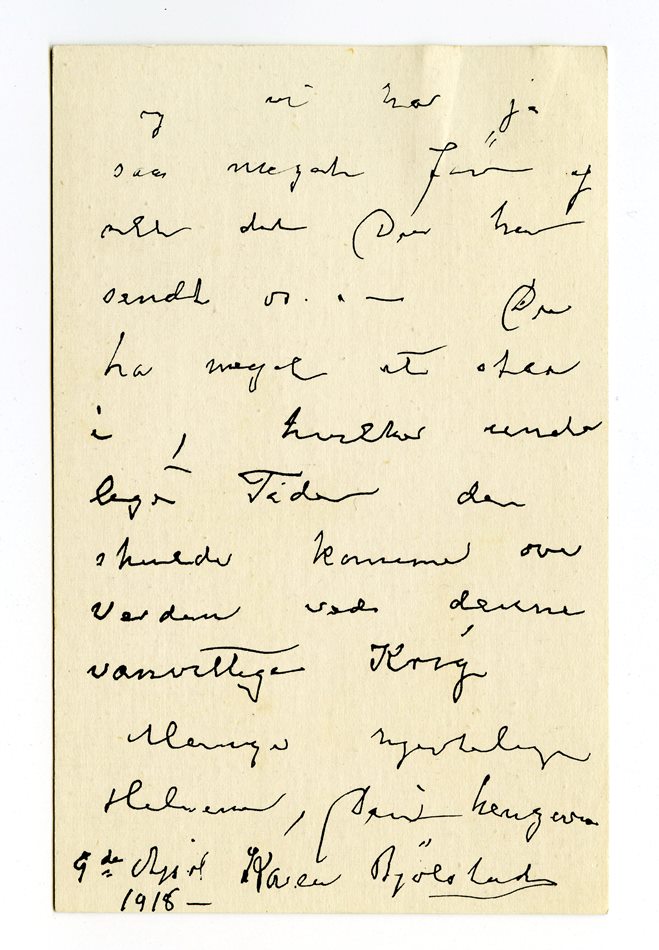 og vi har ja
saa meget for af
alt det De har
sendt os. . — De
ha meget at staa
i, hvilke under
lige Tider der
skulde komme over
Verden ved denne
vanvittige Krig
Mange hjertelige
Hilsener, Deres hengivne
9de April Karen Bjölstad
1918 —